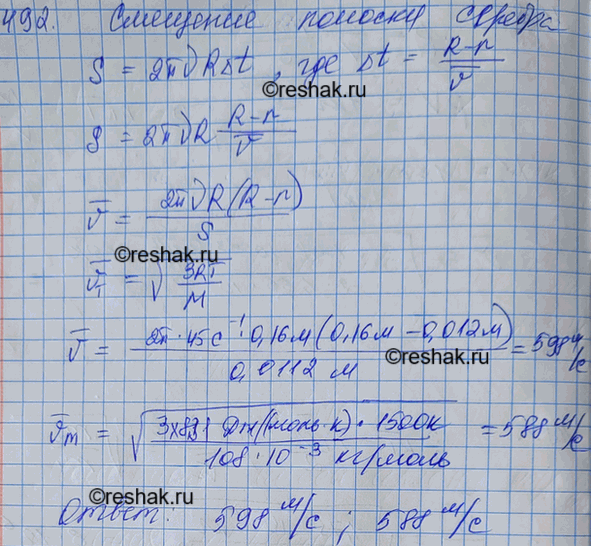 492. Смещение полоски серебра
S = 2πνRΔt, где Δt = (R-r)/v̅
©reshak.ru
S = 2πνR (R-r)/v̅
v̅ = 2πνR(R-r)/S
©reshak.ru
v̅т = √(3RT/M)
v̅ = 2π·45с⁻¹·0,16м(0,16м-0,012м)/0,0112 м = 598 м/с
©reshak.ru
v̅т = √(3x8,31 Дж/(моль·К)·1500К/108·10⁻³ кг/моль) = 588 м/с
©reshak.ru
Ответ: 598 м/с; 588 м/с